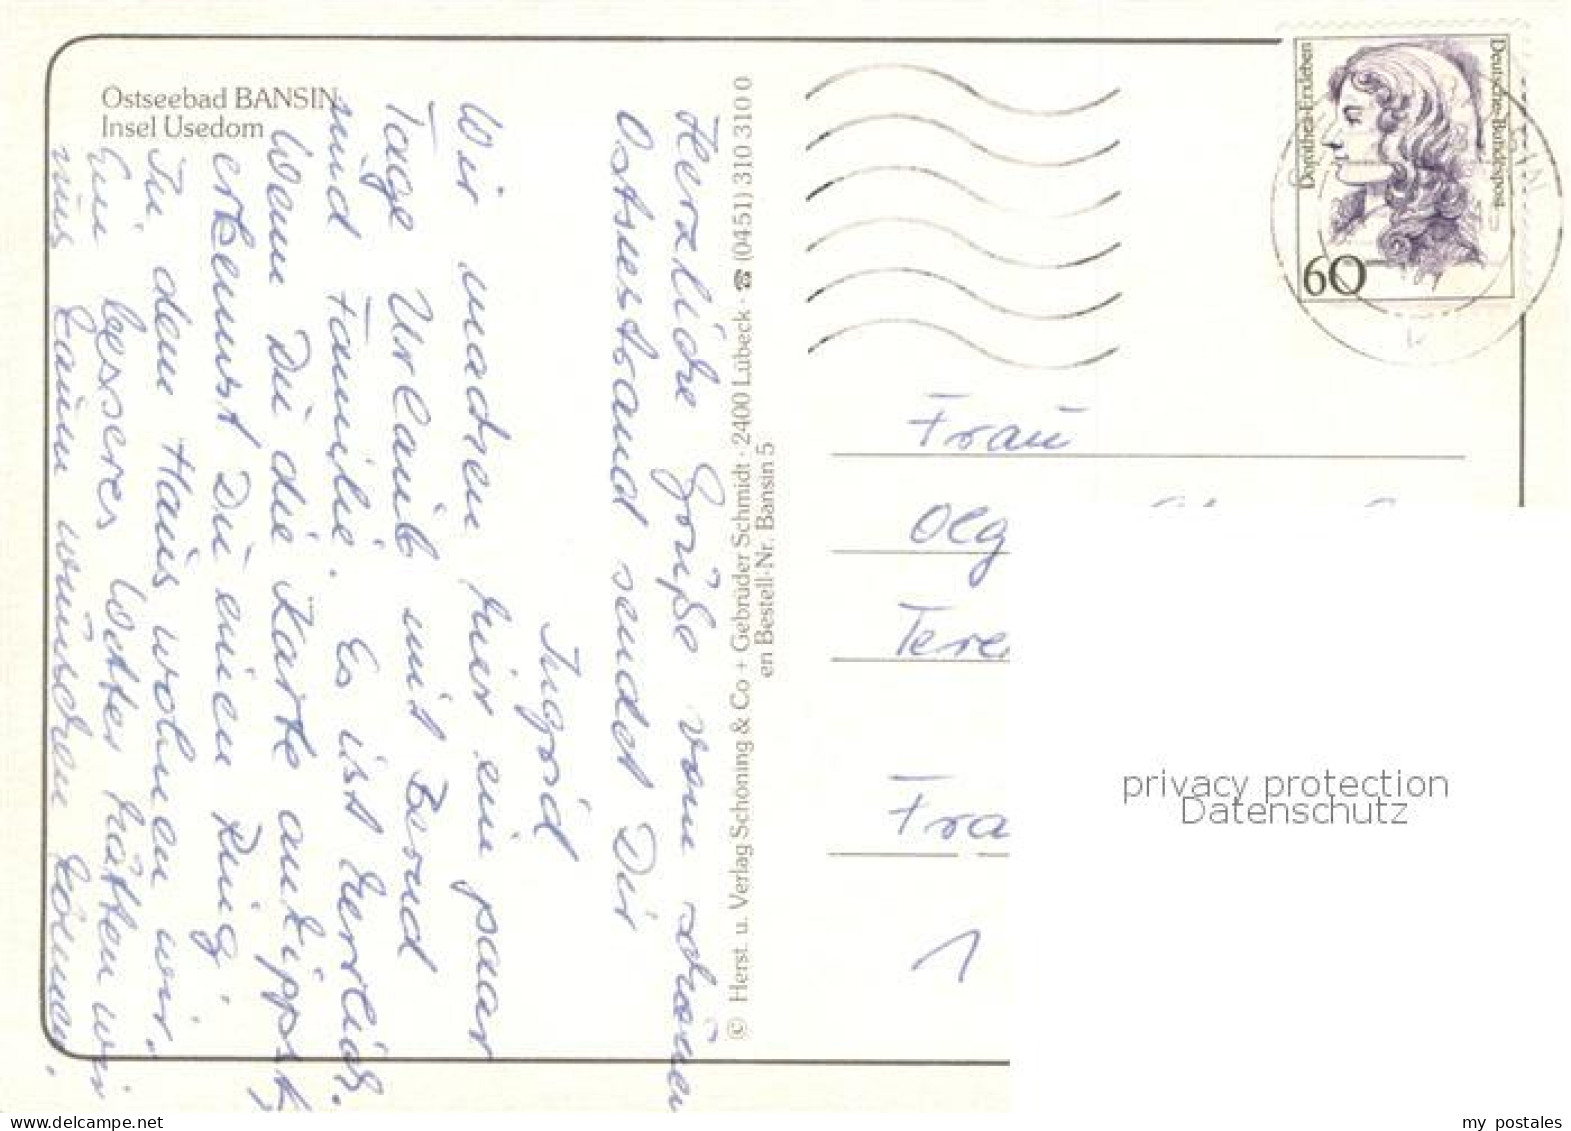 Ostseebad BANSIN
Insel Usedom
Herzliche Grüße vom schönen
Ostseestrand sendet Dir
Ingrid
Wir machen hier ein paar
Tage Urlaub mit Bernd
und Familie. Es ist herrlich.
Wenn Du die Karte ankippst,
erkennst Du einen Ring.
In dem Haus wohnen wir.
Ein besseres Wetter hätten wir
uns kaum wünschen können.
© Herst. u. Verlag Schöning & Co + Gebrüder Schmidt · 2400 Lübeck · ☎ (0451) 310 310 0
en Bestell-Nr. Bansin 5
Dorothea Erxleben
Deutsche Bundespost
60
Frau
Olg
Tere
Fra
1
privacy protection
Datenschutz
my postales